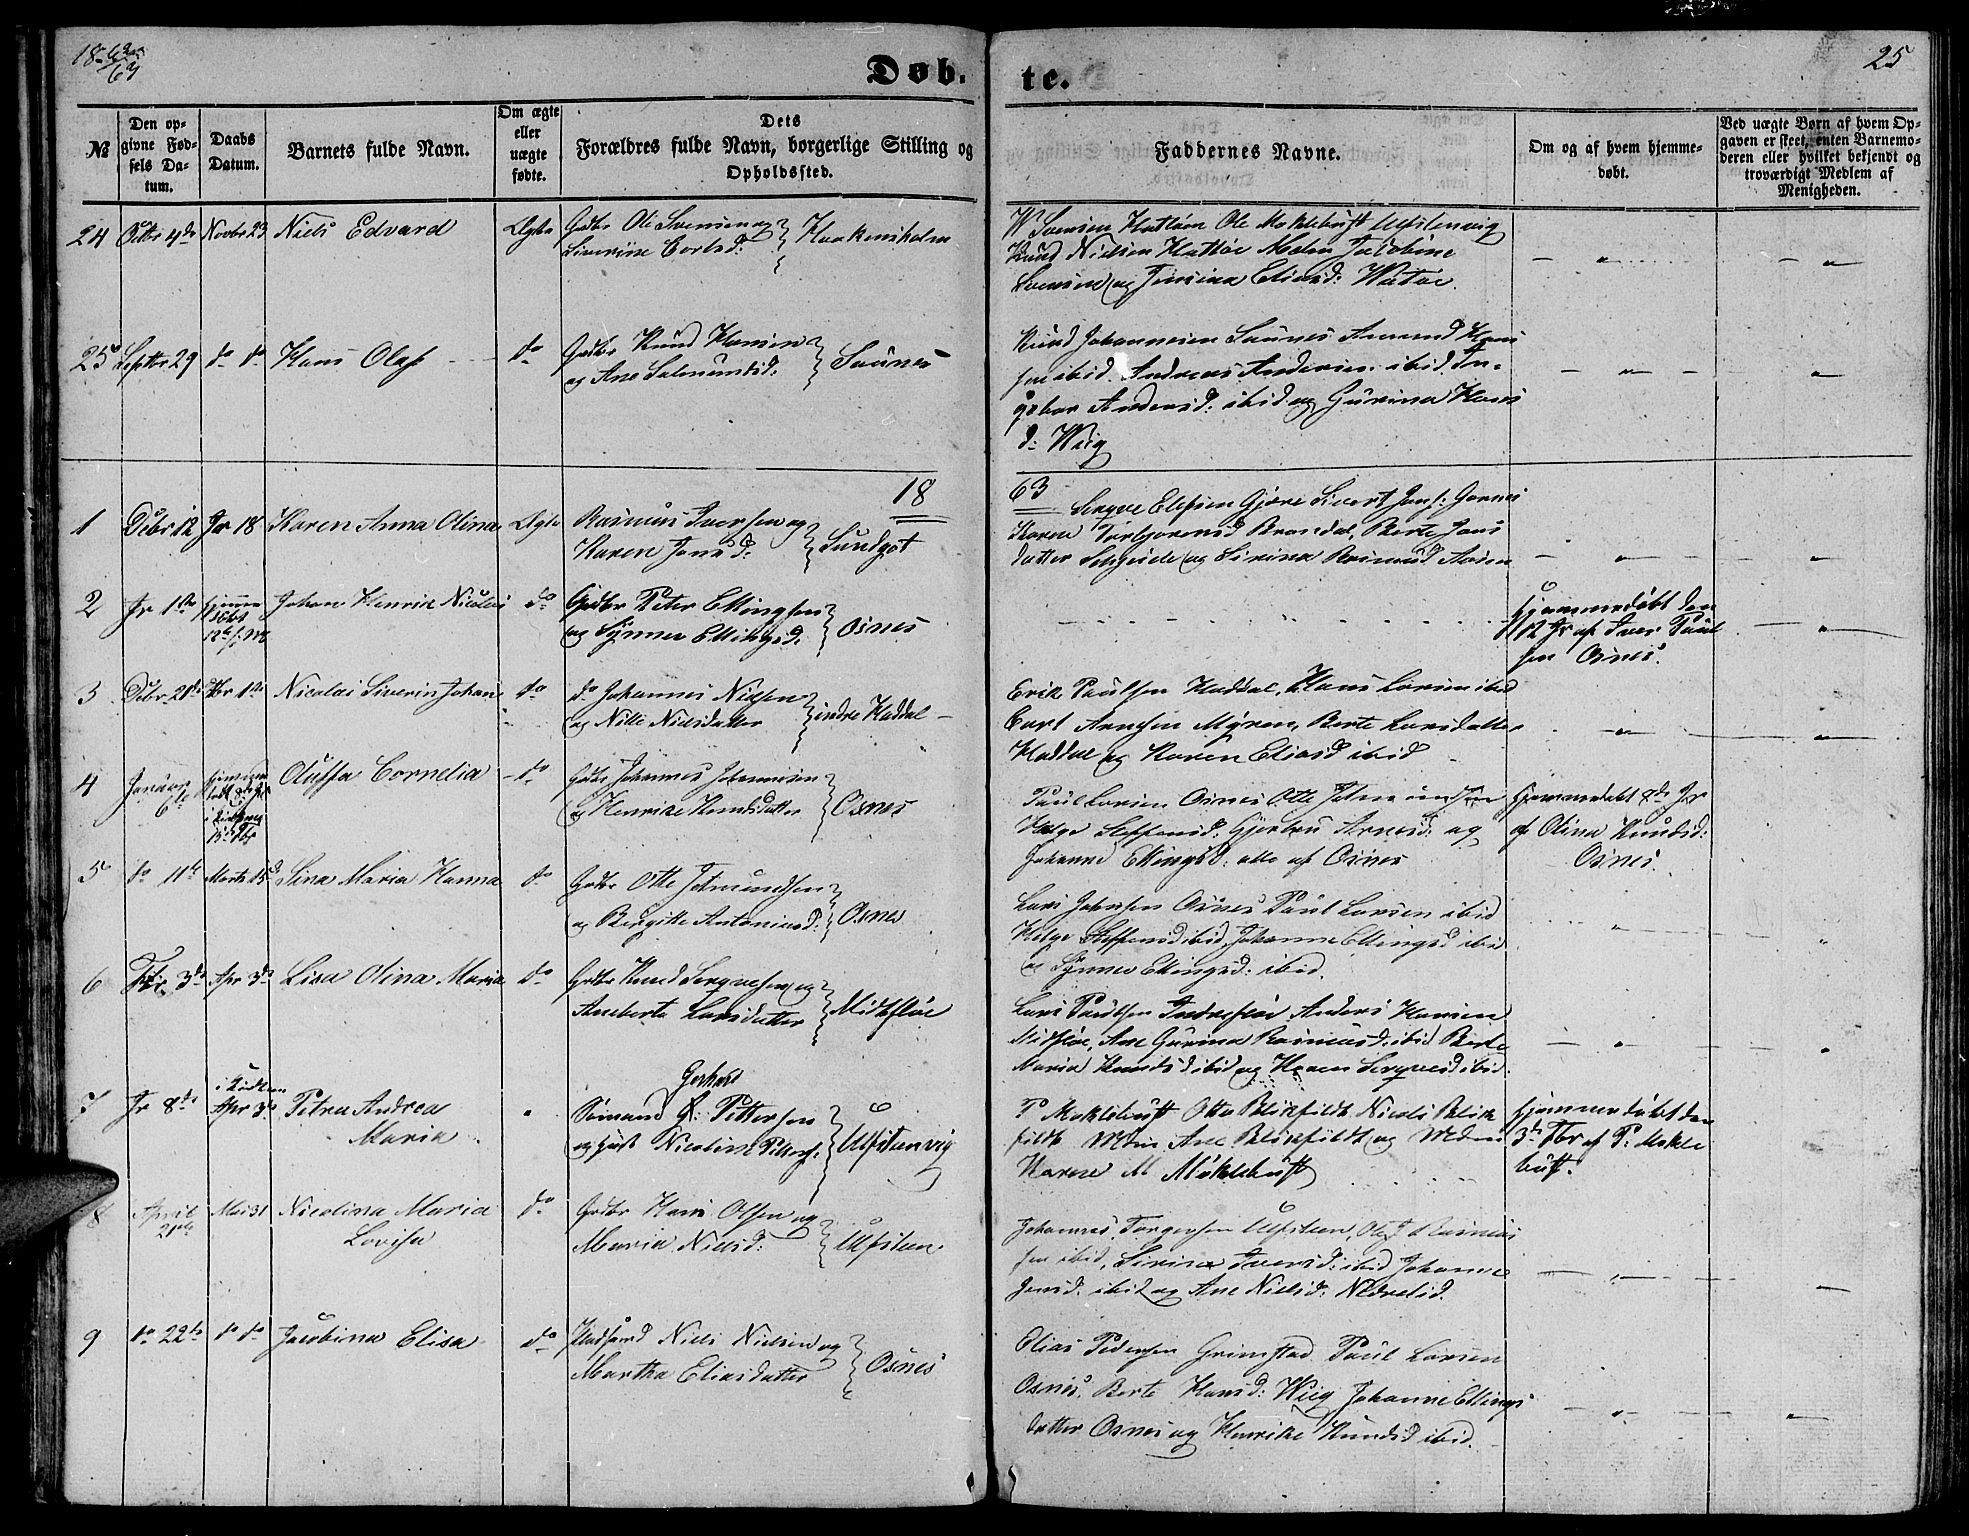 1862/63
Døb. te.
25
№
Den opgivne Fødsels Datum.
Daabs Datum.
Barnets fulde Navn.
Om ægte eller uægte fødte.
Dets Forældres fulde Navn, borgerlige Stilling og Opholdssted.
Faddernes Navne.
Om og af hvem hjemmedøbt.
Ved uægte Børn af hvem Opgaven er skeet, enten Barnemoderen eller hvilket bekjendt og troværdigt Medlem af Menigheden.
24 Octbr 4de Novbr 23 Niels Edvard Ægte Gdbr Ole Svensen og
Severine Carlsd: Haakensholm
Ole Moklebust Ulfstenvig
Knud Nielsen Hatløe Jacobine
Svensen og Jensina Eliasd:
25 Septbr 29 do do Hans Olaf do Gdbr Knud Hansen
og Ane Salmundsd: Saunes
Knud Johannesen Saunes Amund Han
sen ibid. Andreas Andersen ibid. In-
gebor Andersd: ibid og Gurina Hans
d: Wiig
1863
1 Decbr 12 Jr 18 Karen Anna Olina Ægte Rasmus Iversen og
Karen Jensd: Sundgot
Sivert Jens: Garnes
Karen Brandal, Berte Jens
datter og Sirina Rasmusd
2 Jr 1ste hjemmedøbt 12te Johan Henrik Nicolai do Gdbr Peter Ellingsen
og Synnev Ellingsd. Osnes
hjemmedøbt den
12 Jr af Iver Paul
sen Osnes.
3 Decbr 21de Fbr 1ste Nicolai Siverin Johan do do Johannes Nielsen
og Nille Nielsdatter indre Haddal
Erik Paulsen Haddal, Hans Larsen ibid
Carl Arnesen Myren, Berte Larsdatter
Haddal og Karen Eliasd ibid
4 Januar 6te hjemmedøbt Olussa Cornelia do Gdbr Johannes Johannesen
og Henrike Knudsdatter Osnes
Paul Larsen Osnes Otte Jetmundsen
Helge Steffensd: Gjertru Arnesd: og
Johanne Ellingsd: alle af Osnes
hjemmedøbt 8de Jr
af Olina Knudsd:
Osnes.
5 do 11te Marts 15d Sina Maria Hanna do Gdbr Otte Jetmundsen
og Birgitte Antoniusd: Osnes
Lars Johnsen Osnes Paul Larsen ibid
Helge Steffensd ibid, Johanne Ellingsd ibid
og Synnev Ellingsd: ibid.
6 Fbr. 3de Apr 3de Lisa Olina Maria do Gdbr Knud Sergvesen og
Aneberte Larsdatter Midtfløe
Lars Paulsen Indrefløe Anders Hansen
Midtfløe, Ane Gurina Rasmusd: ibid Berte
Maria Knudsd ibid og Karen Sergvesd ibid.
7 Jr 8de i Kirken Apr 3de Petra Andrea
Maria
Gerhard
Sømand G: Pettersen
og Nicoline Petters: Ulfstenvig
P Moklebust Otto Blikfeldt Nicolai Blik
feldt Ane Blikfeldt og
Karen M Moklebust
hjemmedøbt den
3de Fbr af P: Mokle
bust.
8 April 21de Mai 31 Nicolina Maria
Lovisa do Gdbr Hans Olsen og
Maria Nielsd: Ulfsten
Johannes Torgersen Ulfsten, Ole Rasmus
sen ibid, Sirina Iversd: ibid Johanne
Jensd: ibid og Ane Nielsd: Nedrelid.
9 do 22de do do Jacobina Elisa do Niels Nielsen og
Martha Eliasdatter Osnes
Elias Pedersen Grimstad Paul Larsen
Osnes, Berte Hansd: Wiig Johanne Ellings
datter Osnes og Henrike Knudsd ibid.